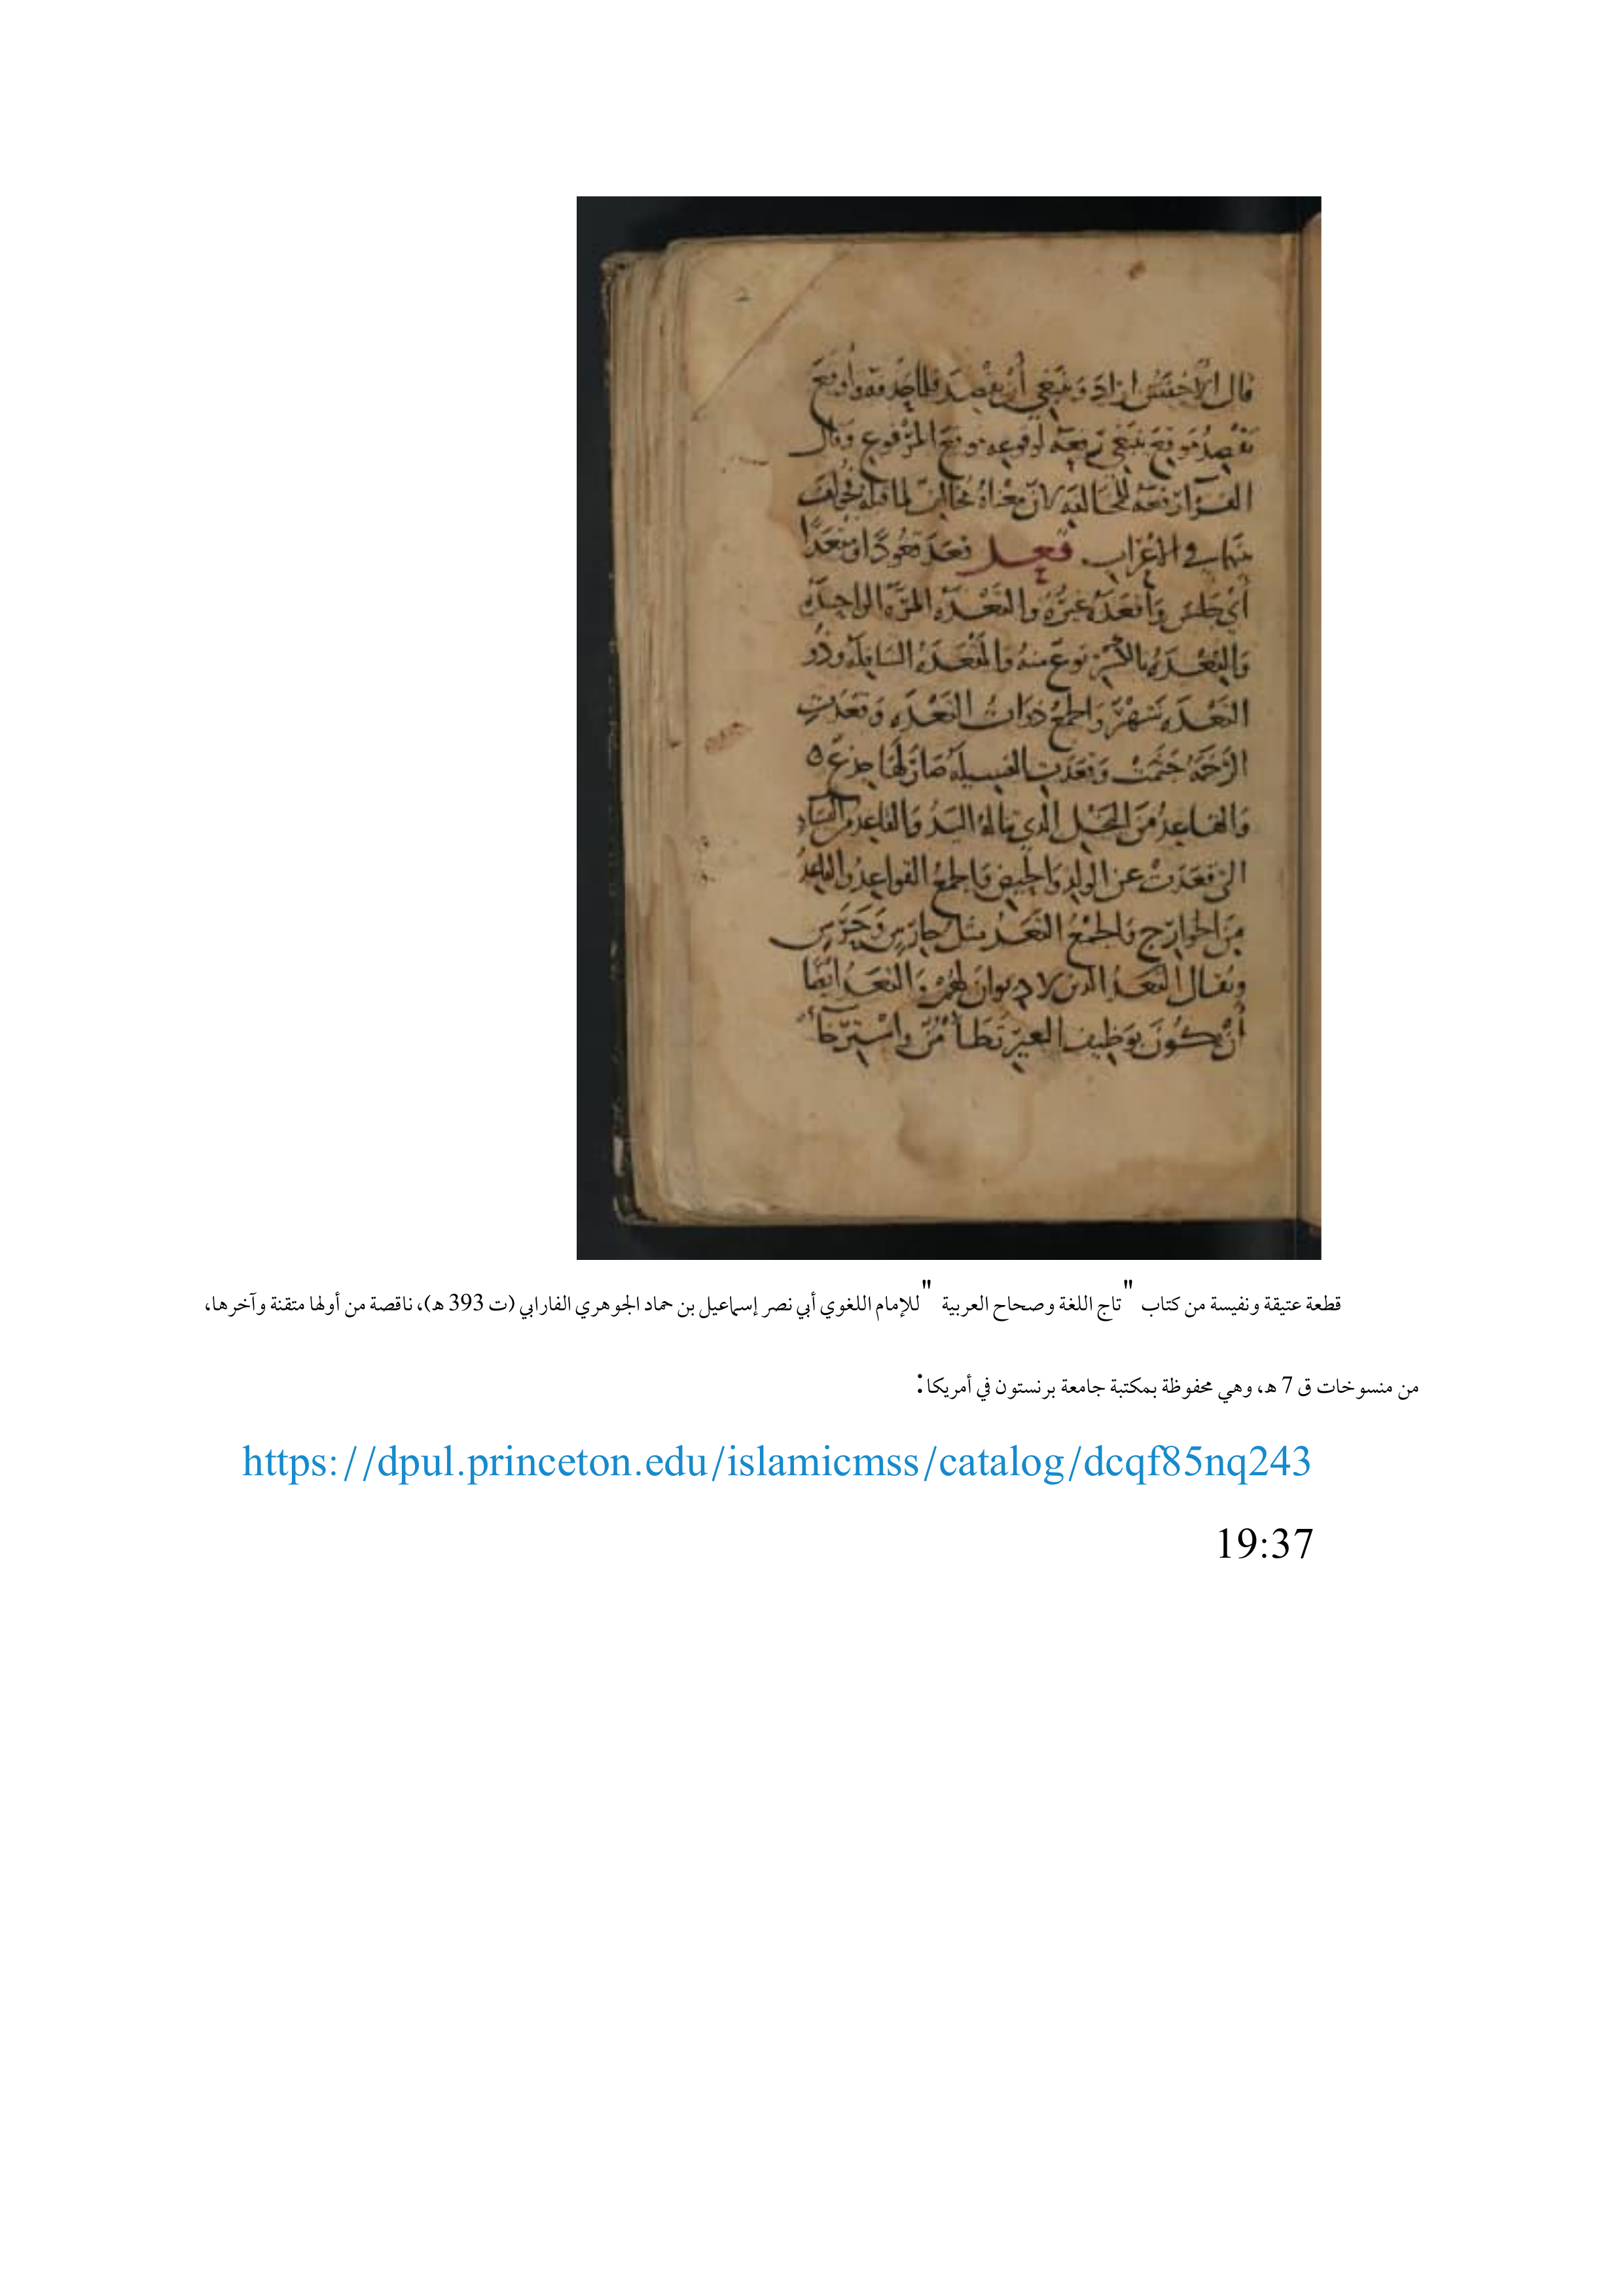 قال الأخفش أراد وينبغي أن يقصد فلما حذفه وأوقع
يَقْصِدُ موقع ينبغي رفعه لوقوعه موقع المرفوع وقال
الفراء رفعه للمخالفة لأن معناه مخالف لما قبله فخولف
بينهما في الإعراب قعد قَعَدَ قعودًا ومقعدًا
أي جلس وأقعده غيره والقَعْدة المرّة الواحدة
والقِعْدة بالكسر نوع منه والمَقْعَدة السافلة وذو
القَعْدة شهرٌ والجمع ذوات القَعْدة وقعدت
الرخمة جثمت وقعدت الفسيلة صار لها جذع ٥
والقاعد من النخل الذي تناله اليد والقاعد من النساء
التي قعدت عن الولد والحيض والجمع القواعد والقاعد
من الخوارج والجمع القَعَد مثل حارس وحَرَس
ويقال القَعَد الذين لا ديوان لهم والقَعَد أيضا
أن يكون بوظيف البعير تطأمن واسترخاء
قطعة عتيقة ونفيسة من كتاب "تاج اللغة وصحاح العربية" للإمام اللغوي أبي نصر إسماعيل بن حماد الجوهري الفارابي (ت 393 هـ)، ناقصة من أولها متقنة وآخرها،
من منسوخات ق 7 هـ، وهي محفوظة بمكتبة جامعة برنستون في أمريكا:
https://dpul.princeton.edu/islamicmss/catalog/dcqf85nq243
19:37